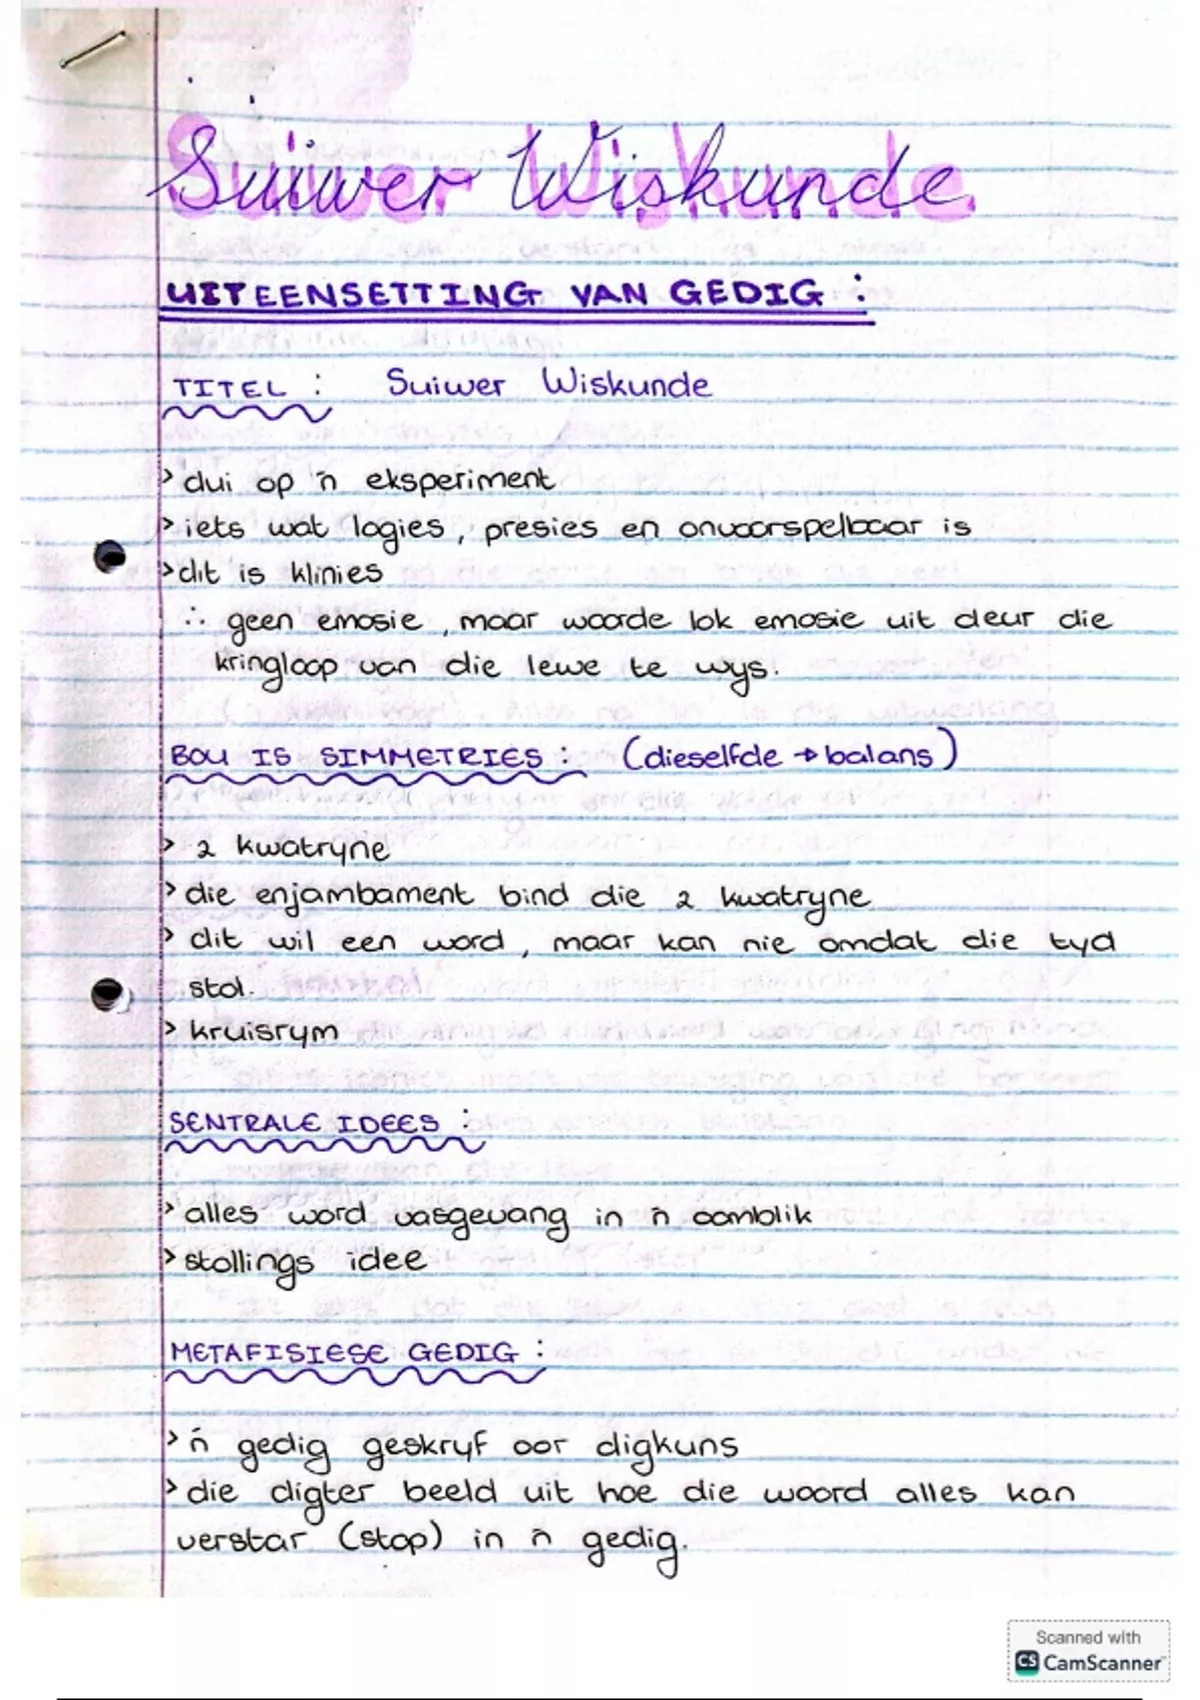 Suiwer Wiskunde
UITEENSETTING VAN GEDIG :
TITEL : Suiwer Wiskunde
> dui op 'n eksperiment
> iets wat logies, presies en onvoorspelbaar is
> dit is klinies
∴ geen emosie, maar woorde lok emosie uit deur die
kringloop van die lewe te wys.
BOU IS SIMMETRIES : (dieselfde → balans)
> 2 kwatryne
> die enjambament bind die 2 kwatryne
> dit wil een word, maar kan nie omdat die tyd
stol.
> kruisrym
SENTRALE IDEES :
> alles word vasgevang in 'n oomblik
> stollings idee
METAFISIESE GEDIG :
> 'n gedig geskryf oor digkuns
> die digter beeld uit hoe die woord alles kan
verstar (stop) in 'n gedig.
Scanned with
CS CamScanner